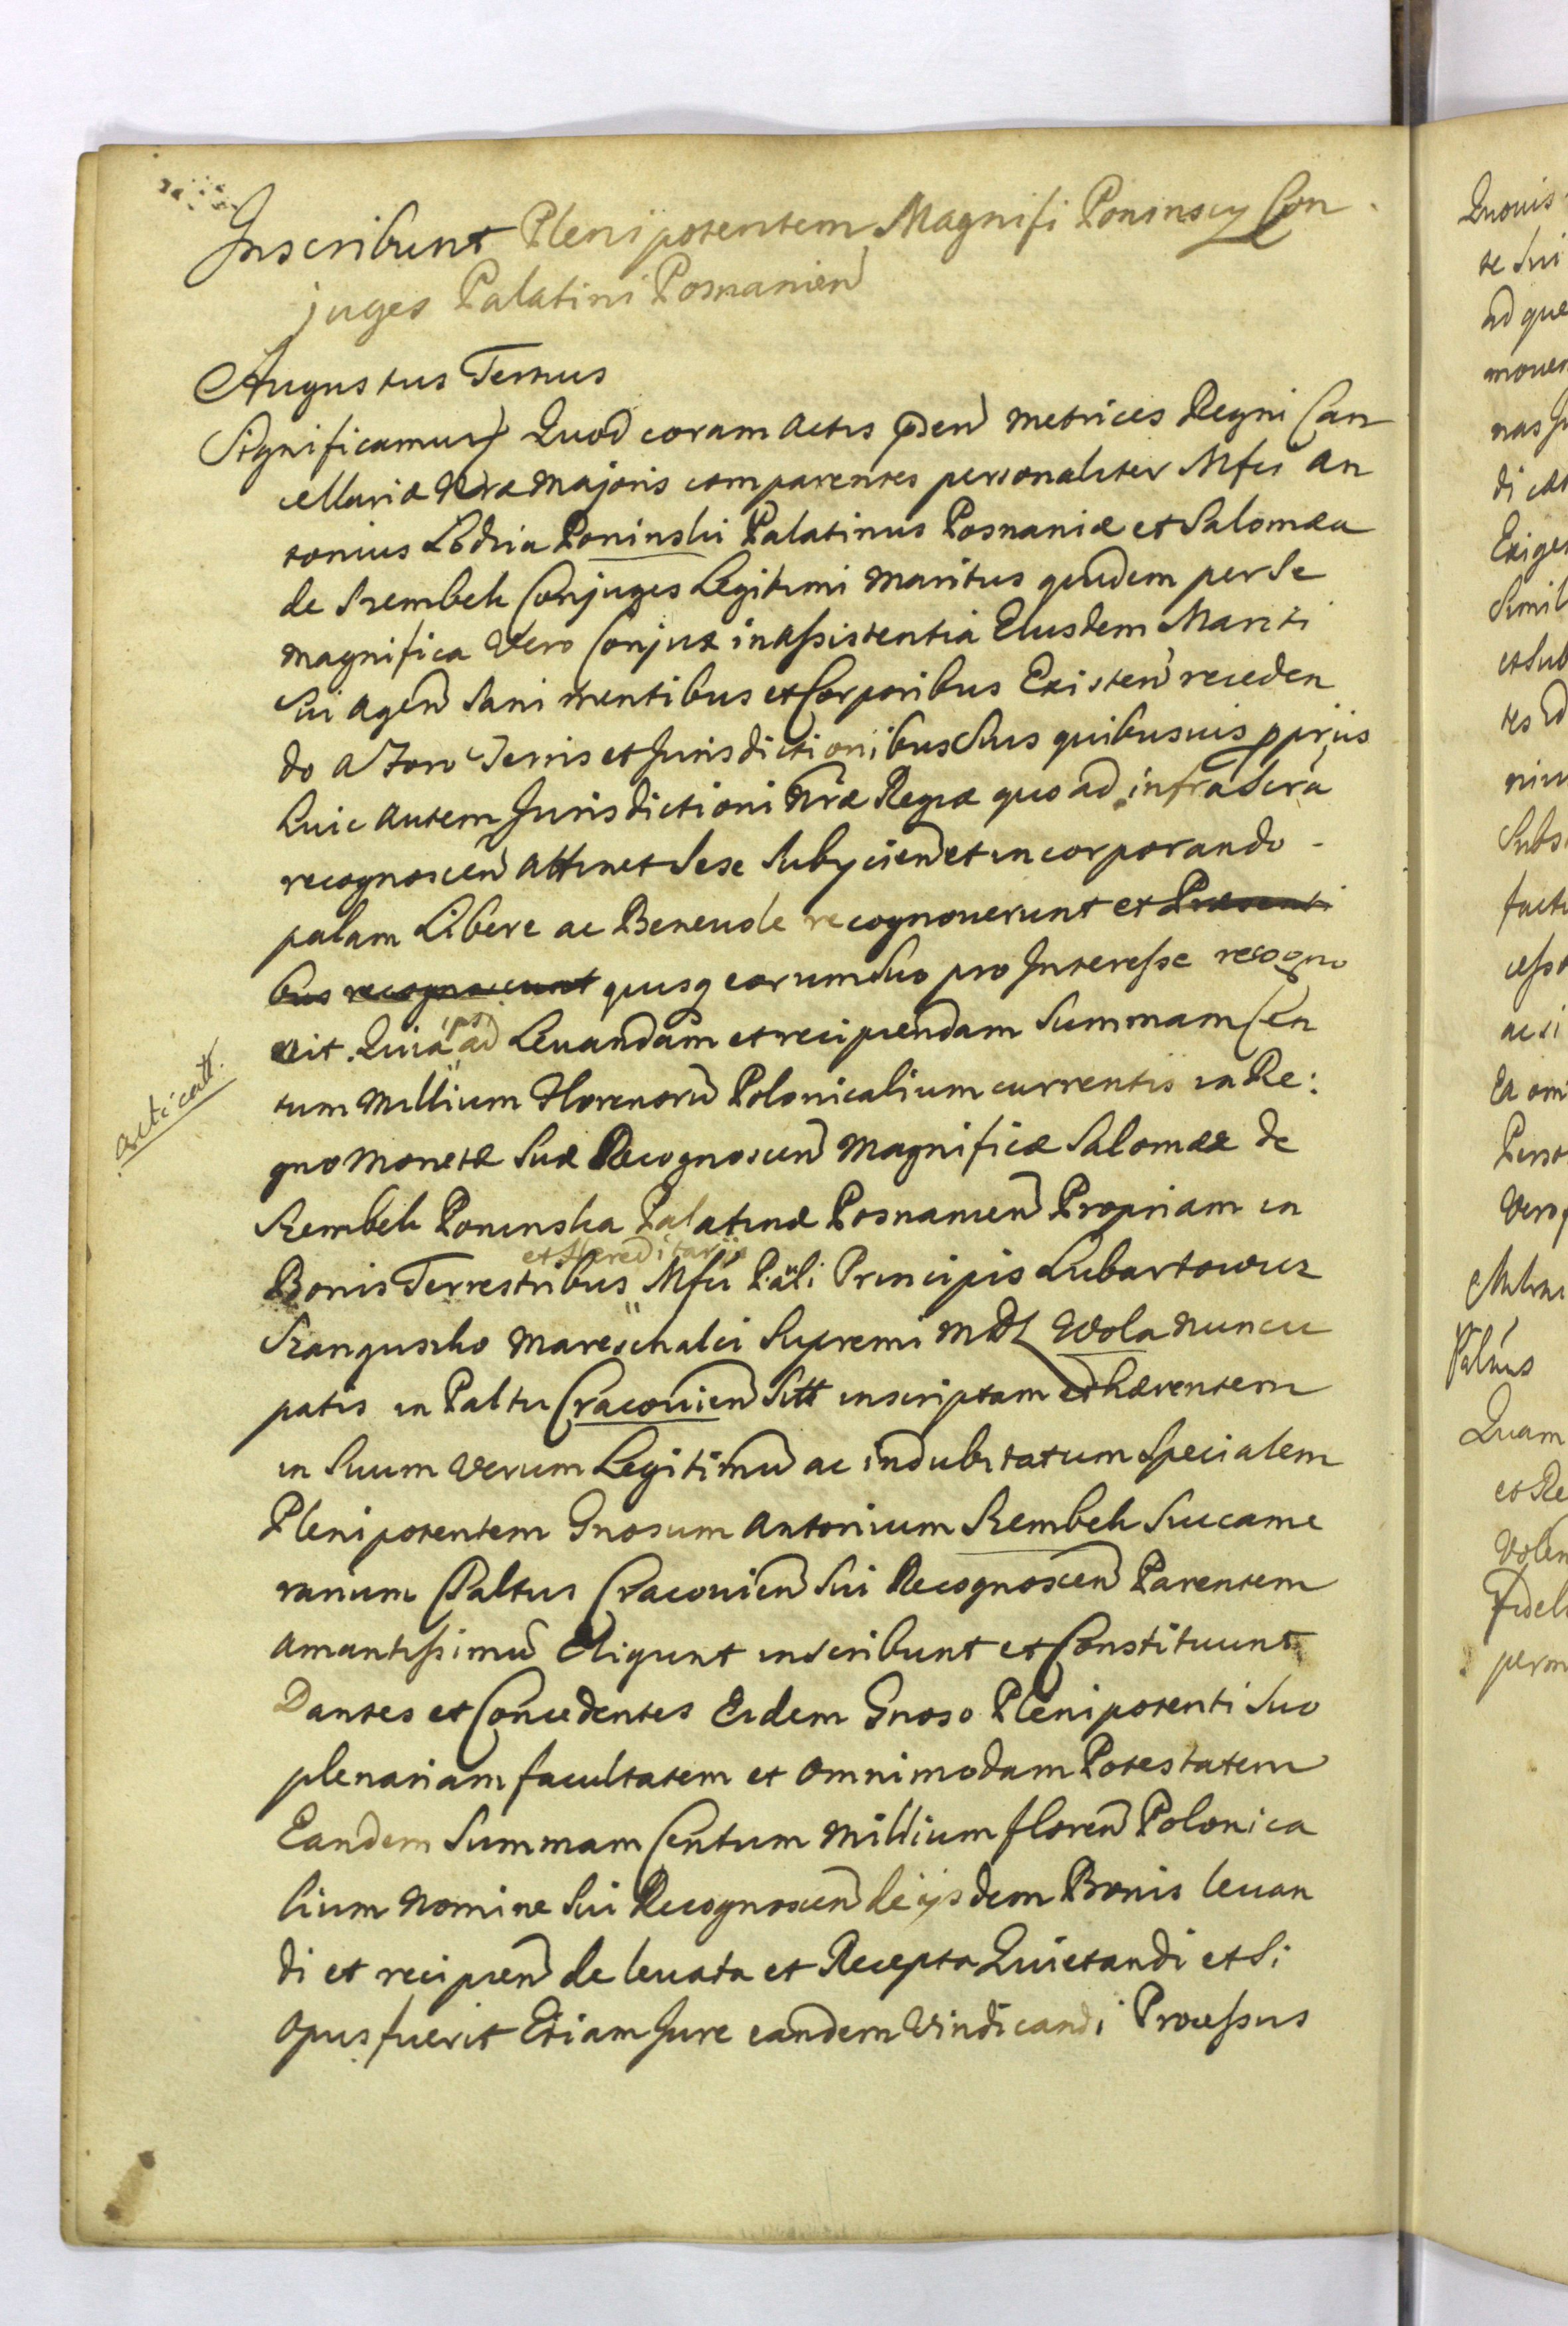 Inscribunt Plenipotentem Magnifi Poninscy Con
juges Palatini Posnanien
Augustus Tertius
Significamus Quod coram Actis pден metrices Regni Can
cellariæ Nræ Majoris comparentes personaliter Mfci An
tonius Lodzia Poninski Palatinus Posnaniæ et Salomæa
de Szembek Conjuges Legitimi Maritus quidem per Se
magnifica Vero Conjux in Assistentia Eiusdem Mariti
Sui Agen Sani Mentibus et Corporibus Existen receden
do A Foro Terris et Jurisdictionibus Suis quibusuis pprijs
huic Autem Jurisdictioni Nræ Regiæ quo ad infra Scra
recognoscen Attinet Sese Subijcien et incorporando
palam Libere ac Beneuole recognouerunt et Præsenti
bus recognoscunt quisq eorum Suo pro Interesse recogno
vit. Quia ipsi ad Leuandam et recipiendam Summam Cen
tum Millium Florenorũ Polonicalium currentis in Re:
gno Monetæ Suæ Recognoscen Magnificæ Salomææ de
Szembek Poninska Palatinæ Posnanien Propriam in
et Hereditarijs
Bonis Terrestribus Mfci Pauli Principis Lubartowicz
Sanguszko Mareschalci Supremi MDL Wola Nuncu
patis in Paltu Cracouien Sitt inscriptam et hærentem
in Suum Verum Legitimũ ac indubitatum Specialem
Plenipotentem Gnosum Antonium Szembek Succame
rarium Paltus Cracouien Sui Recognoscen Parentem
Amantissimũ Eligunt inscribunt et Constituunt
Dantes et Concedentes Eidem Gnoso Plenipotenti Suo
plenariam facultatem et Omnimodam Potestatem
Eandem Summam Centum Millium floren Polonica
lium Nomine Sui Recognoscen de ijsdem Bonis leuan
di et recipien de leuata et Recepta Quietandi et Si
Opus fuerit Etiam Jure eandem Vindicandi Processus
acticatt.
Quouis
te Sui
ad que
mouen
nas Ju
Exige
Simil
et Sub
Subs
Ea om
Vero
Quam
et Re
Volen
Fidel
perm